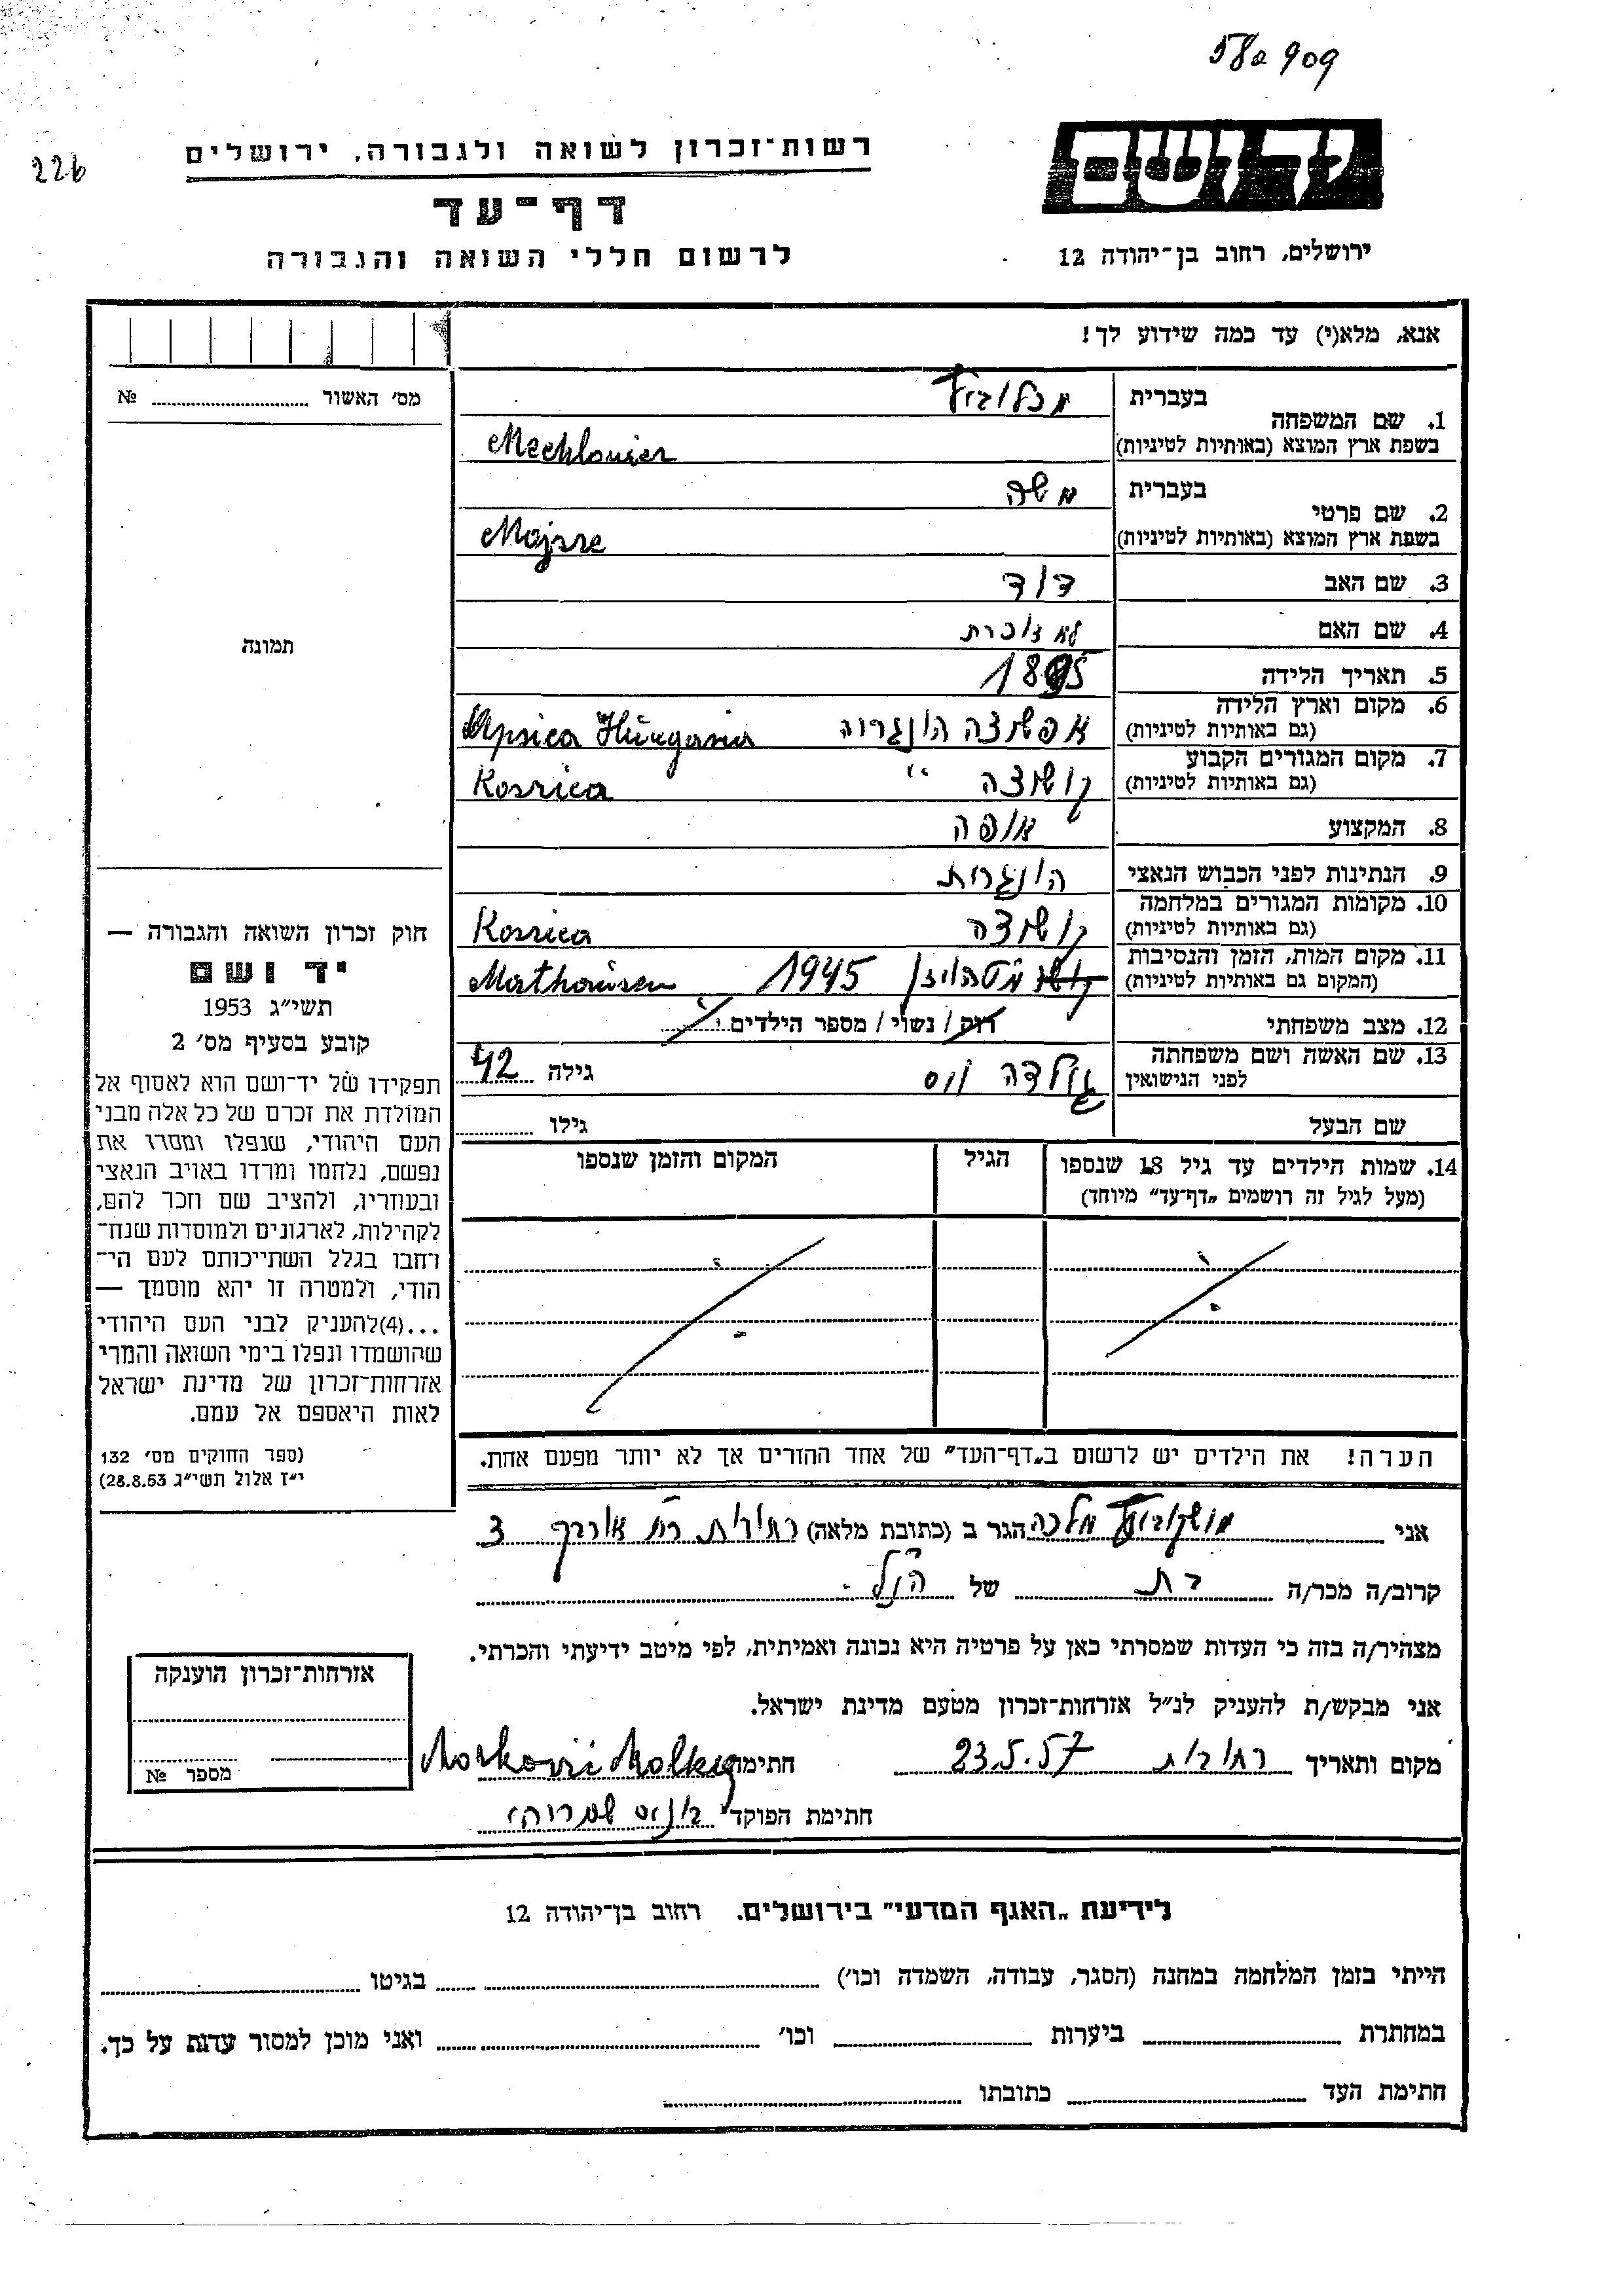 58a 909
226
יד ושם
רשות־זכרון לשואה ולגבורה, ירושלים
דף־עד
לרשום חללי השואה והגבורה
ירושלים, רחוב בן־יהודה 12
אנא, מלא(י) עד כמה שידוע לך!
מס׳ האשור №
תמונה
1. שם המשפחה
בעברית מכלוביץ
בשפת ארץ המוצא (באותיות לטיניות) Mechlovicz
2. שם פרטי
בעברית משה
בשפת ארץ המוצא (באותיות לטיניות) Mojsze
3. שם האב דוד
4. שם האם לא זוכרת
5. תאריך הלידה 1895
6. מקום וארץ הלידה אפשצה הונגריה Apsica Hungaria
(גם באותיות לטיניות)
7. מקום המגורים הקבוע קושצה " Koszica
(גם באותיות לטיניות)
8. המקצוע אופה
9. הנתינות לפני הכבוש הנאצי הונגרית
10. מקומות המגורים במלחמה קושצה Koszica
(גם באותיות לטיניות)
11. מקום המות, הזמן והנסיבות מטהויזן 1945 Mathausen
(המקום גם באותיות לטיניות)
12. מצב משפחתי רווק / נשוי / מספר הילדים
13. שם האשה ושם משפחתה גולדה וייס גילה 42
לפני הנישואין
שם הבעל גילו
14. שמות הילדים עד גיל 18 שנספו הגיל המקום והזמן שנספו
(מעל לגיל זה רושמים „דף־עד” מיוחד)
הערה! את הילדים יש לרשום ב„דף־העד” של אחד ההורים אך לא יותר מפעם אחת.
חוק זכרון השואה והגבורה —
יד ושם
תשי״ג 1953
קובע בסעיף מס׳ 2
תפקידו של יד־ושם הוא לאסוף אל
המולדת את זכרם של כל אלה מבני
העם היהודי, שנפלו ומסרו את
נפשם, נלחמו ומרדו באויב הנאצי
ובעוזריו, ולהציב שם וזכר להם,
לקהילות, לארגונים ולמוסדות שנח־
רחבו בגלל השתייכותם לעם הי־
הודי, ולמטרה זו יהא מוסמך —
...(4)להעניק לבני העם היהודי
שהושמדו ונפלו בימי השואה והמרי
אזרחות־זכרון של מדינת ישראל
לאות היאספם אל עמם.
(ספר החוקים מס׳ 132
י״ז אלול תשי״ג 28.8.53)
אני מושקוביץ מלכה הגר ב (כתובת מלאה) רחובות רח 3
קרוב/ה מכר/ה בת של הנ״ל
מצהיר/ה בזה כי העדות שמסרתי כאן על פרטיה היא נכונה ואמיתית, לפי מיטב ידיעתי והכרתי.
אני מבקש/ת להעניק לנ״ל אזרחות־זכרון מטעם מדינת ישראל.
מקום ותאריך רחובות 23.5.57 חתימה Moskovic Malka
חתימת הפוקד
אזרחות־זכרון הוענקה
מספר №
לידיעת „האגף המדעי” בירושלים. רחוב בן־יהודה 12
הייתי בזמן המלחמה במחנה (הסגר, עבודה, השמדה וכו׳) בגיטו
במחתרת ביערות וכו׳ ואני מוכן למסור עדות על כך.
חתימת העד כתובתו